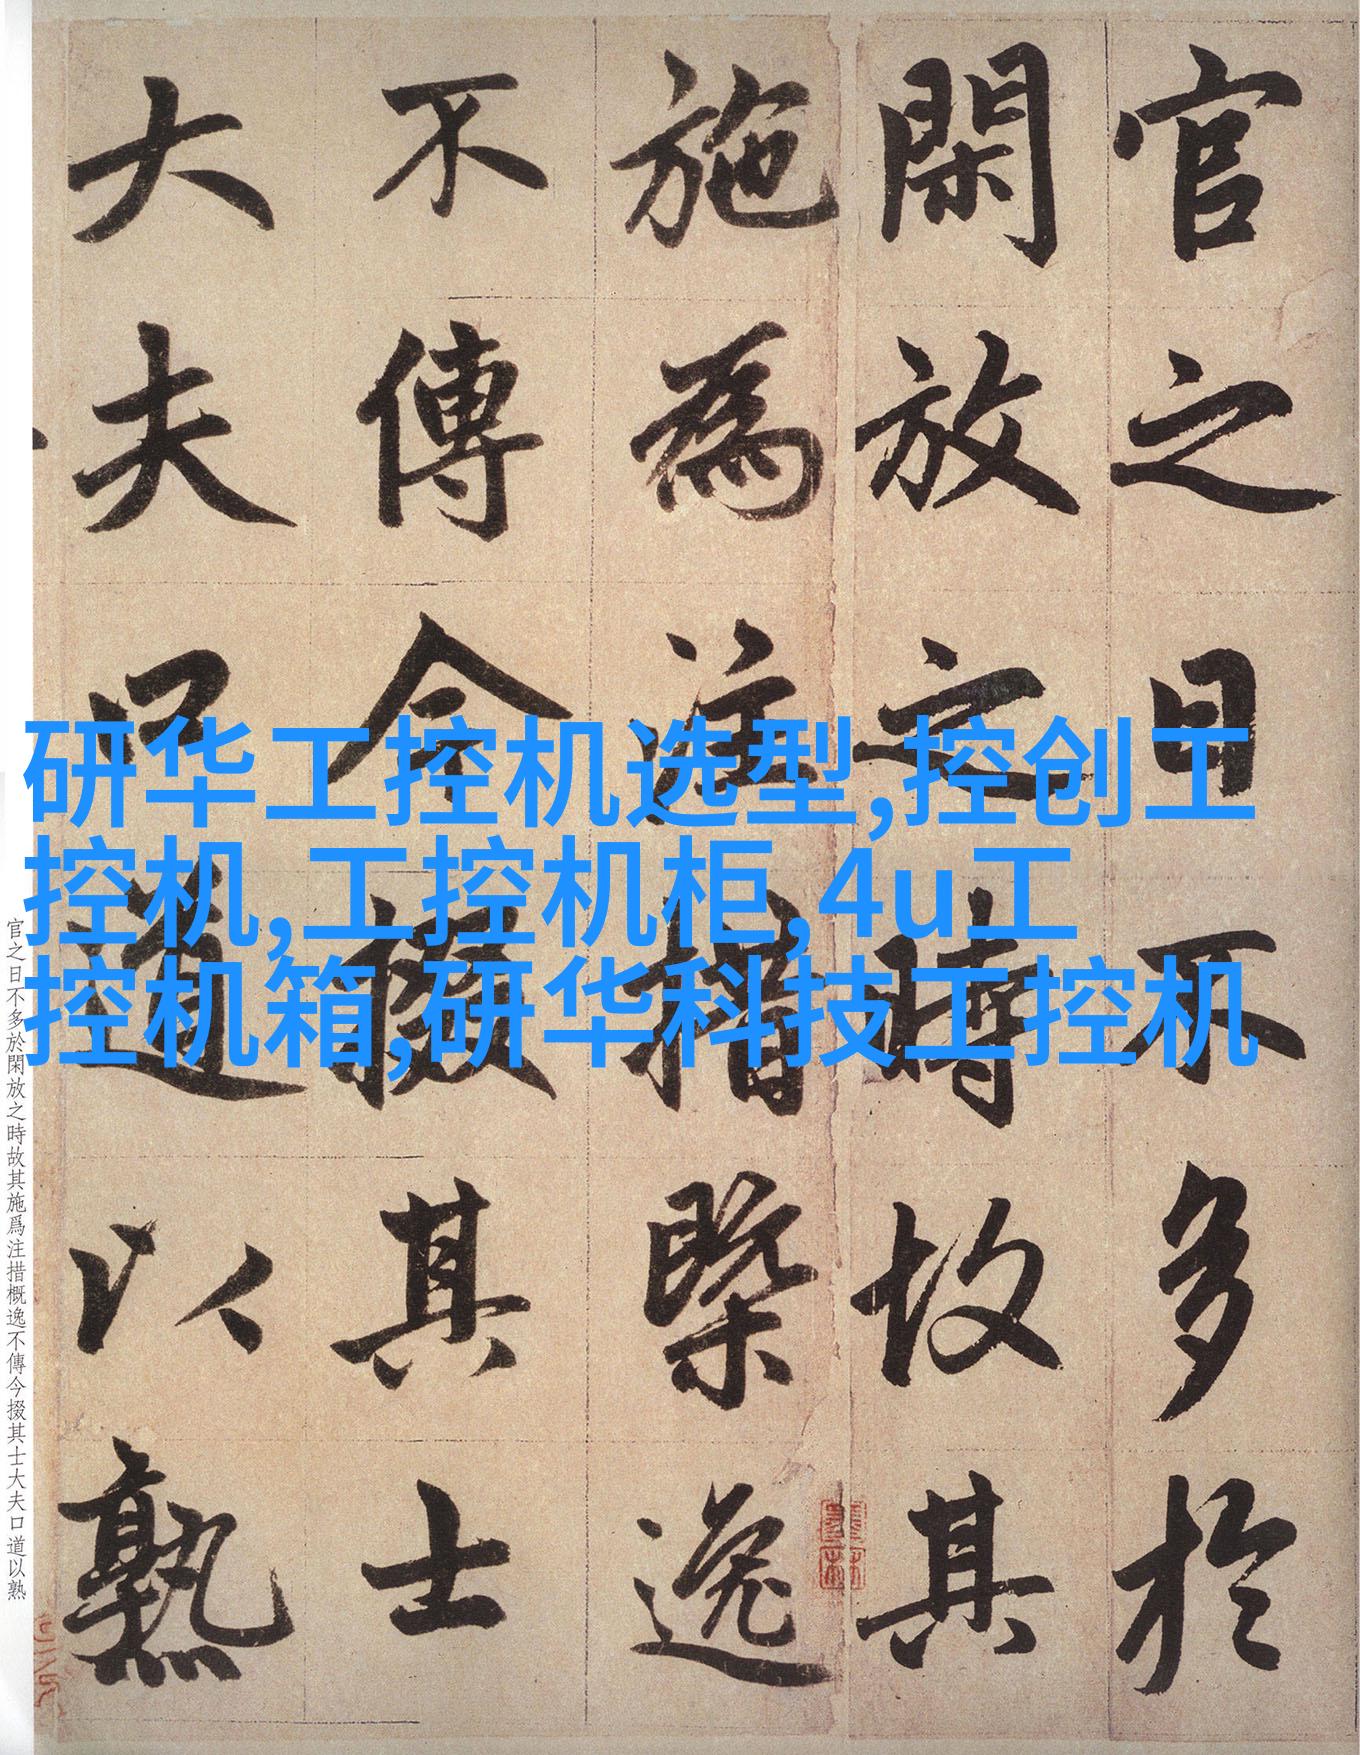 官之日不多於
閑放之時故其
施為注措槩逸
不傳今掇其士
大夫口道以熟
研华工控机选型,控创工
控机,工控机柜,4u工
控机箱,研华科技工控机
官之日不多於閑放之時故其施爲注措概逸不傳今掇其士大夫口道以熟